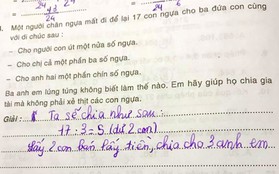 24 43 24
24
1. Một người chăn ngựa mất đi để lại 17 con ngựa cho ba đứa con cùng
với di chúc sau :
– Cho người con út một nửa số ngựa.
– Cho chị cả một phần ba số ngựa.
– Cho anh hai một phần chín số ngựa.
Ba anh em lúng túng không biết làm thế nào. Em hãy giúp họ chia gia
tài mà không phải xẻ thịt các con ngựa.
Giải : Ta sẽ chia như sau :
17 : 3 = 5 (dư 2 con)
Lấy 2 con bán lấy tiền, chia cho 3 anh em...